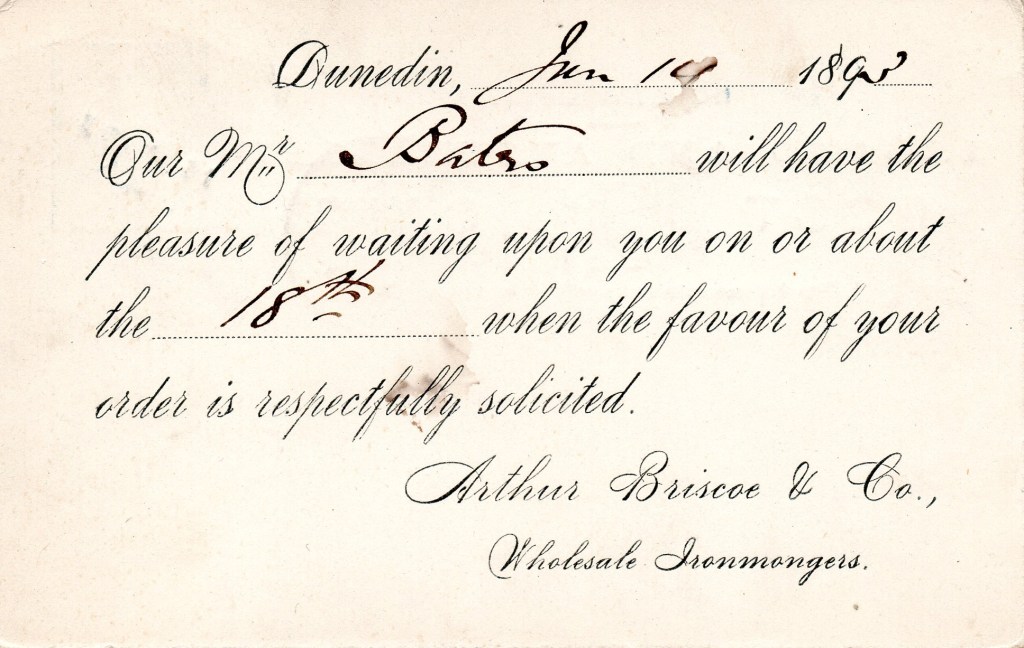 Dunedin, Jan 14 1893
Our Mr Bates will have the
pleasure of waiting upon you on or about
the 18th when the favour of your
order is respectfully solicited.
Arthur Briscoe & Co.,
Wholesale Ironmongers.